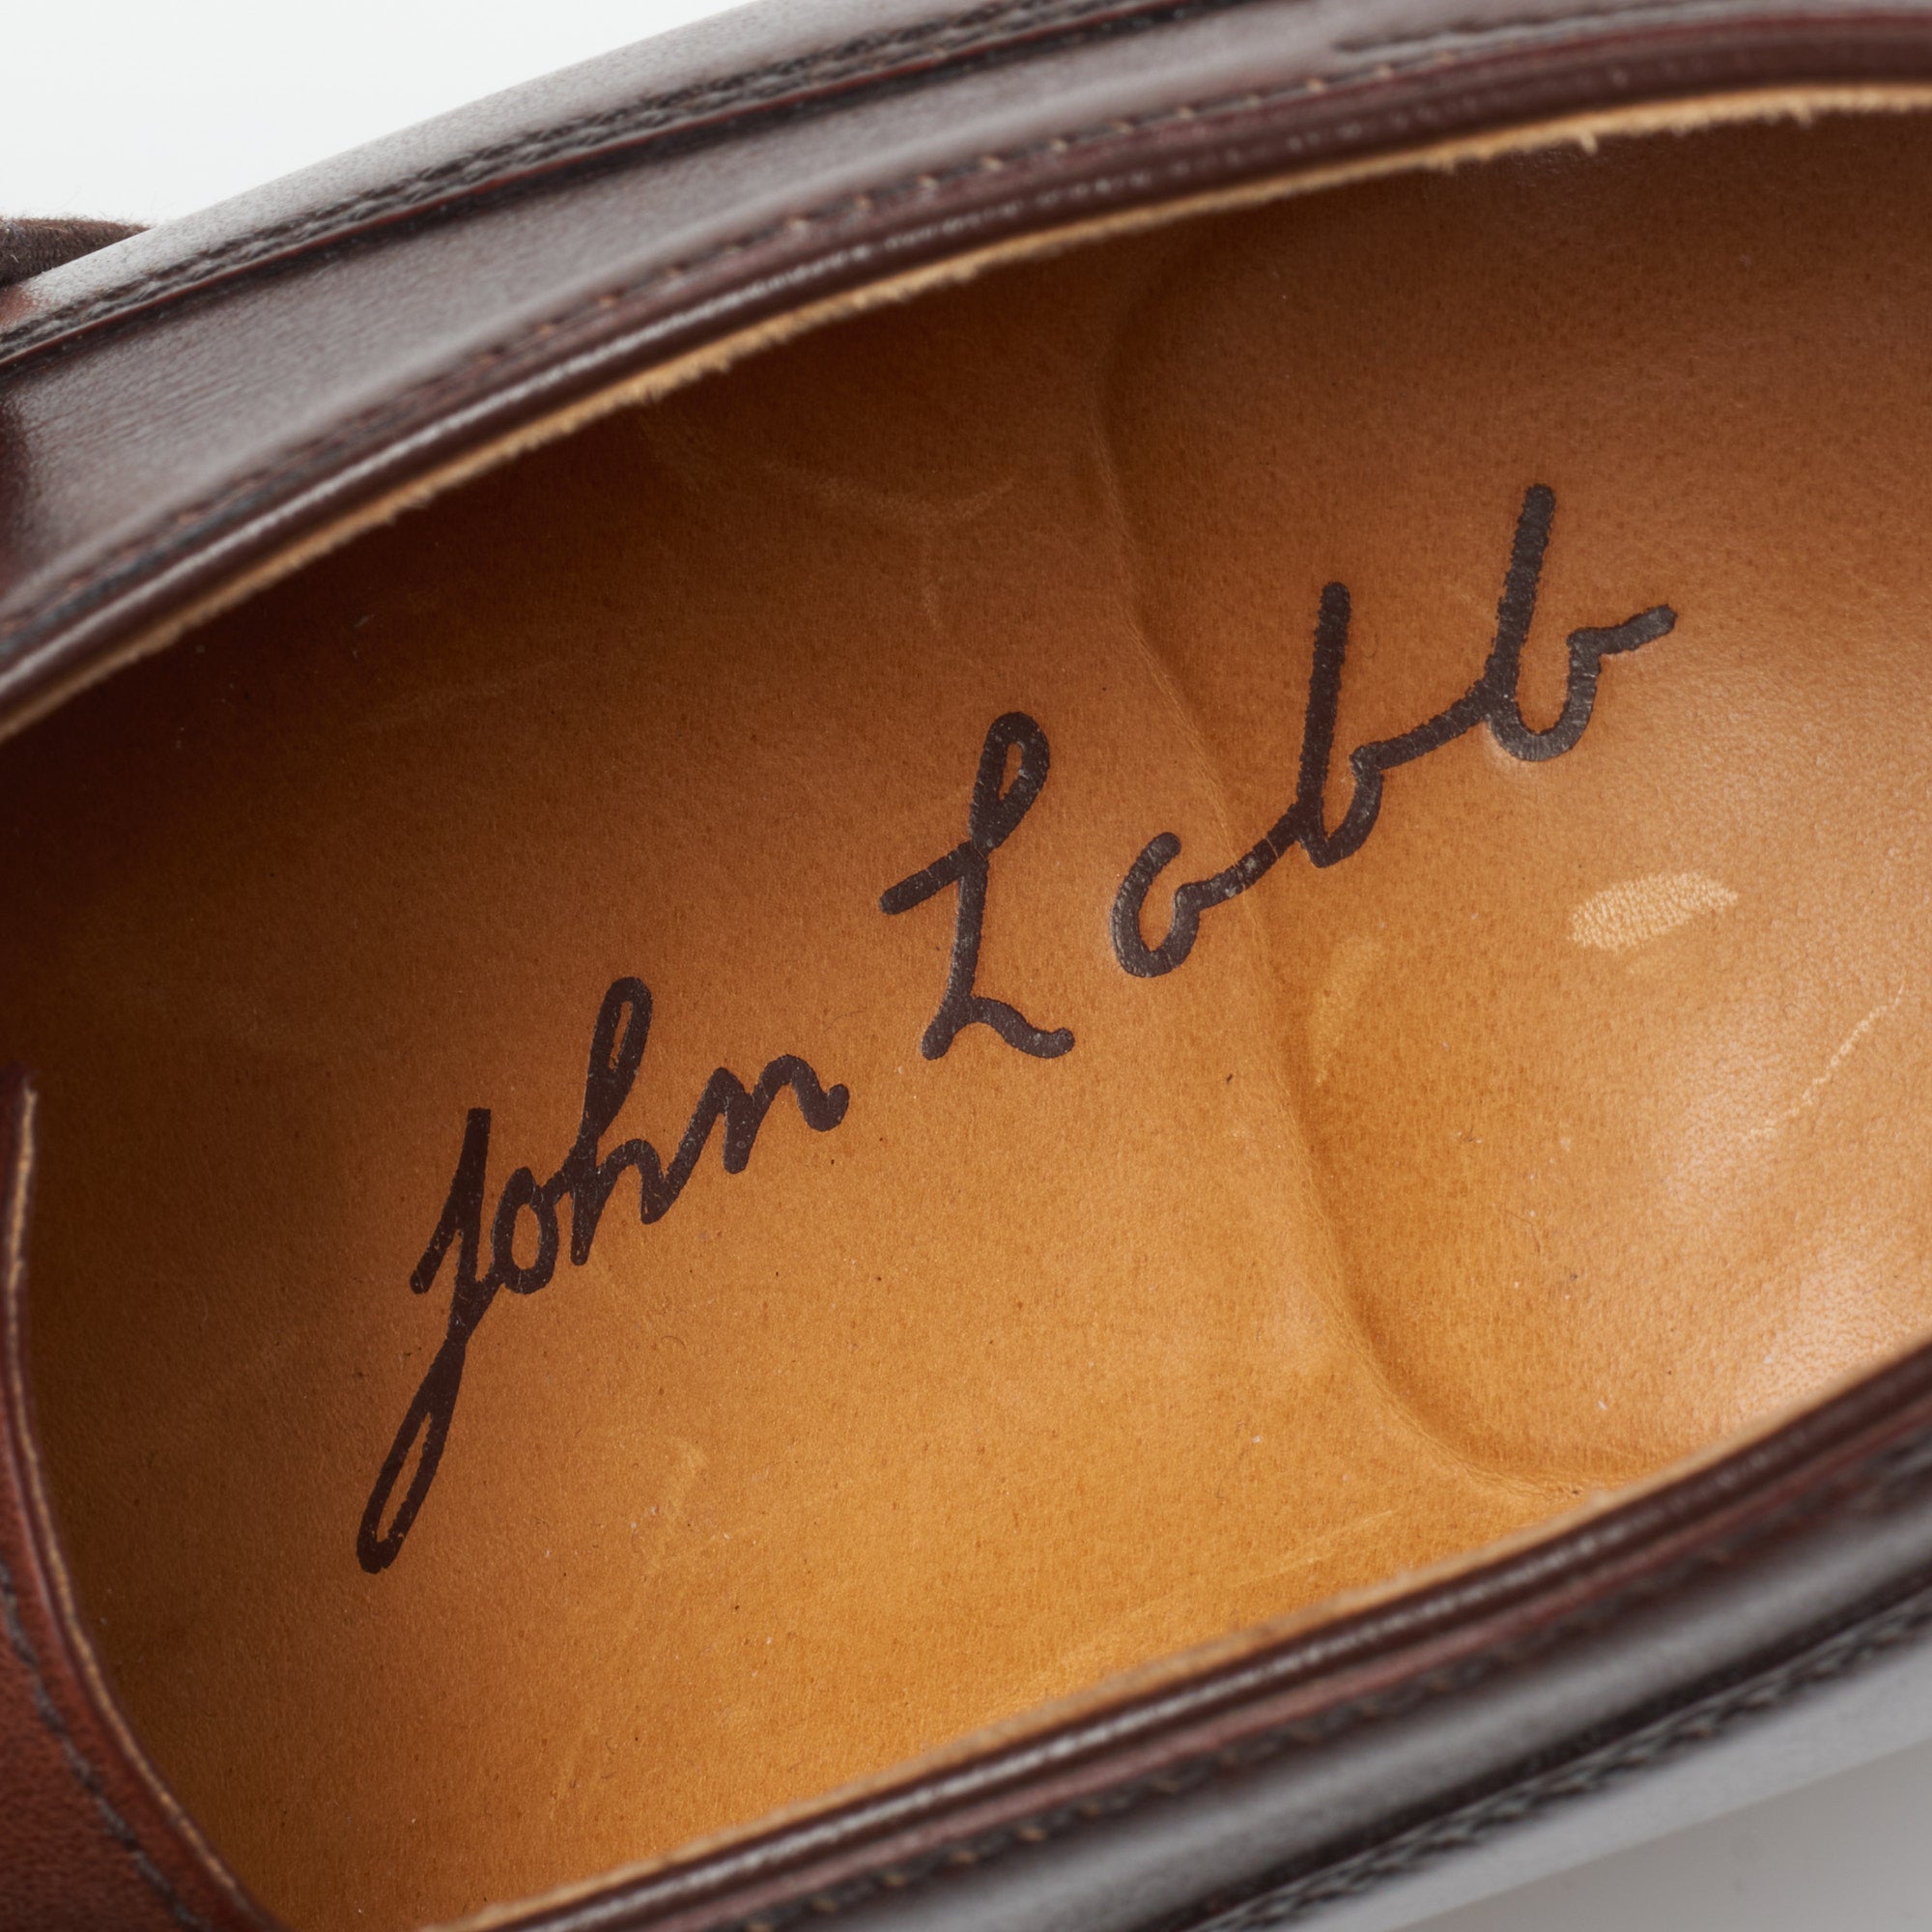 John Lobb